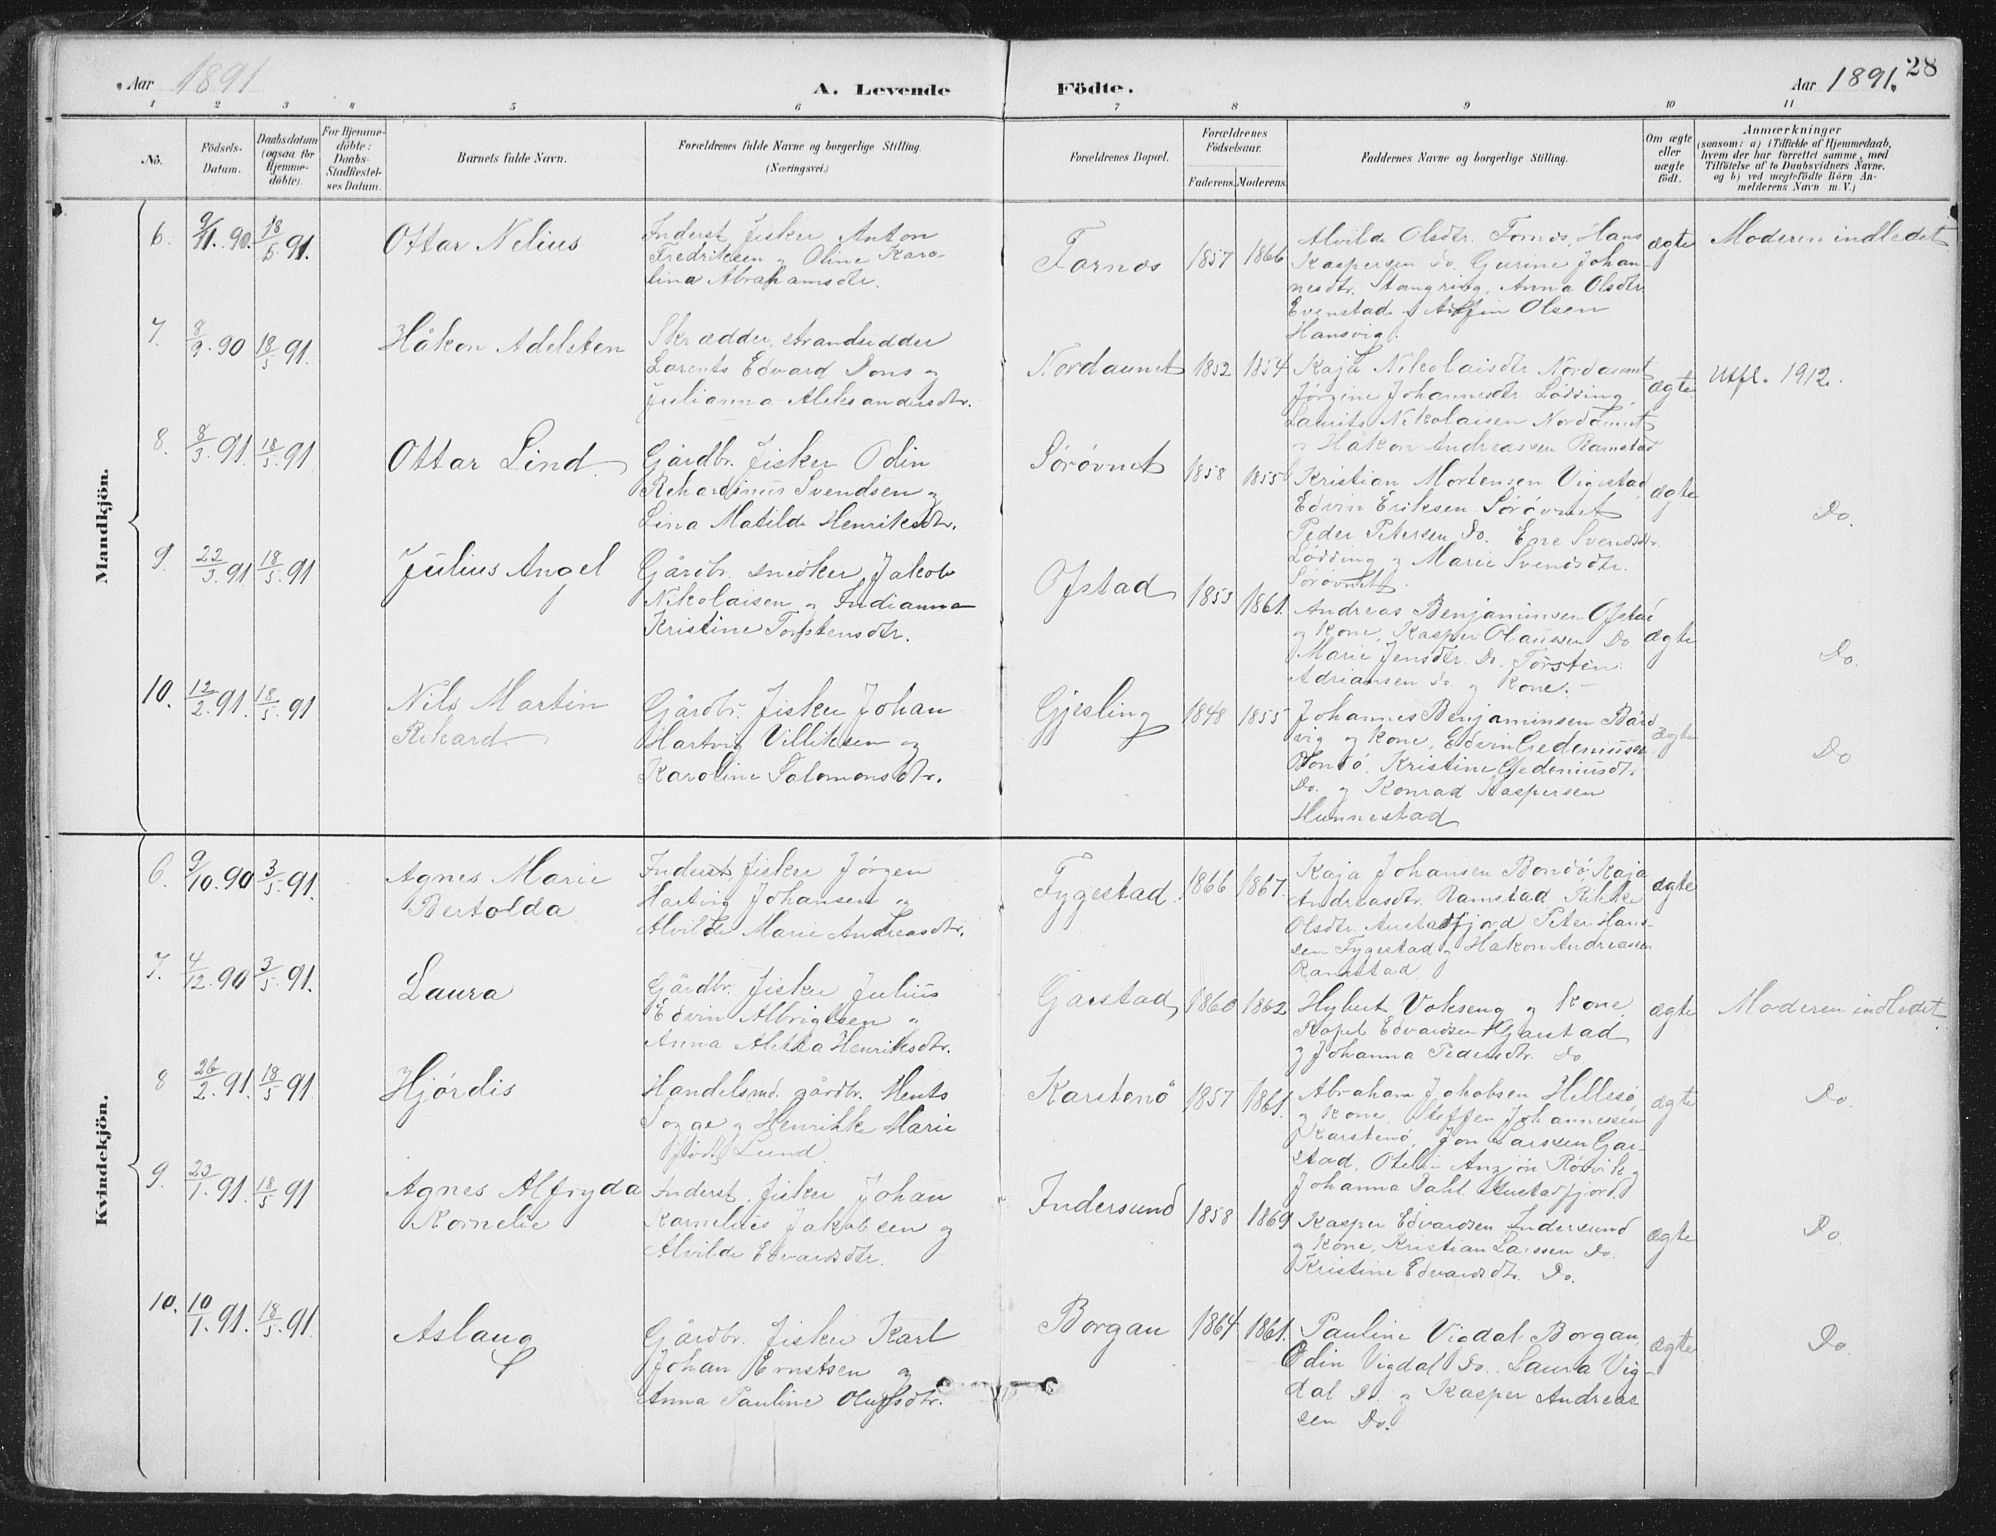 Aar 1891
A. Levende Födte.
Aar 1891.
28
1 2 3 4 5 6 7 8 9 10 11
No.
Födsels-Datum.
Daabsdatum (ogsaa for Hjemme-döbte).
For Hjemme-döbte: Daabs-Stadfæstel-ses Datum.
Barnets fulde Navn.
Forældrenes fulde Navne og borgerlige Stilling.
(Næringsvei.)
Forældrenes Bopæl.
Forældrenes Födselsaar.
Faderens. Moderens.
Faddernes Navne og borgerlige Stilling.
Om ægte eller uægte födt.
Anmærkninger
(saasom: a) i Tilfælde af Hjemmedaab,
hvem der har forrettet samme, med
Tilföielse af to Daabsvidners Navne,
og b) ved uægtefödte Börn An-
melderens Navn m. V.)
Mandkjön.
6. 9/11.90. 18/5 91. Ottar Nelius
Inderst Fisker Anton
Fredriksen og Oline Karo-
lina Abrahamsdtr.
Fornes 1857 1866
Alvilde Olsdtr. Fornes, Hans
Kaspersen do, Gurine Johan-
nesdtr. Stangring, Anna Olsdtr
Evenstad og Arfin Olsen
Hansvig.
ægte Moderen indledet
7. 8/9.90 18/5 91. Håkon Adelsten
Skrædder, strandsidder
Lorents Edvard Dons og
Julianna Aleksandersdtr.
Nordaunet 1852 1854
Kaja Nikolaisdtr Nordaunet
Jørgine Johannesdtr Lødding,
Laurits Nikolaisen Nordaunet
og Håkon Andreassen Ramstad
ægte Utfl. 1912.
8. 8/3.91. 18/5 91 Ottar Lind
Gårdbr. Fisker Odin
Rehardinus Svendsen og
Lina Matilde Henriksdtr.
Sørøvnet 1858 1855
Kristian Mortensen Vigestad
Edvin Eriksen Sørøvnet
Peder Petersen Do. Ene Svendsdtr.
Lødding og Marie Svendsdtr.
Sørøvnet.
ægte Do.
9. 22/3.91 18/5.91 Julius Angel
Gårdbr. snedker Jakob
Nikolaisen og Indianna
Kristine Torstensdtr.
Ofstad 1853 1861.
Andreas Benjaminsen Ofstad
og Kone, Kasper Olaussen Do
Marie Jensdtr. Do. Torsten
Adriansen do og Kone.
ægte Do.
10. 12/2.91. 18/5.91 Nils Martin
Rikard.
Gårdbr. Fisker Johan
Hartvig Villiksen og
Karoline Salomonsdtr.
Gjesling 1848 1855
Johannes Benjaminsen Bård
vig og Kone, Edvin Gedeniussen
Bondø, Kristine Gedeniusdtr
Do. og Konrad Kaspersen
Hunnestad
ægte Do
Kvindekjön.
6. 9/10.90 3/5.91. Agnes Marie
Bertolda
Inderst Fisker Jørgen
Hartvig Johansen og
Alvilde Marie Andreasdtr.
Fygestad. 1866 1867.
Kaja Johansen Bondø, Kaja
Andreasdtr. Ramstad, Rikke
Olsdtr. Austadfjord, Peter Hans-
sen Fygestad og Håkon Andreasen
Ramstad
ægte
7. 4/12.90 3/5.91. Laura
Gårdbr. Fisker Julius
Edvin Albrigtsen og
Anna Aletta Henriksdtr.
Garstad 1860 1862
Hybert Vokseng og Kone,
Rapel Edvardsen Garstad
og Johanna Pedersdtr. do
ægte Moderen indledet
8 26/2.91. 18/5 91 Hjørdis
Handelsmd. gårdbr. Hents
Sogge og Henrikke Marie
født Lund
Karstenø 1857 1861.
Abraham Jakobsen Hellesø
og Kone, Steffen Johannessen
Karstenø, Jon Larssen Gar-
stad, Otelie Anzjøn Rørvik og
Johanna Dahl Austadfjord
ægte Do.
9. 23/1.91. 18/5 91 Agnes Alfryda
Kornelie
Inderst. Fisker Johan
Kornelius Jakobsen og
Alvilde Edvardsdtr.
Indersund 1858 1869
Kasper Edvardsen Indersund
og Kone, Kristian Larssen do.
Kristine Edvardsdtr. Do.
ægte Do.
10. 10/1.91. 18/5.91 Aslaug
Gårdbr. Fisker Karl
Johan Ernstsen og
Anna Pauline Olufsdtr.
Borgan 1864 1861.
Pauline Vigdal Borgan,
Odin Vigdal Do. Laura Vig-
dal do og Kasper Andreas-
sen Do.
ægte Do.